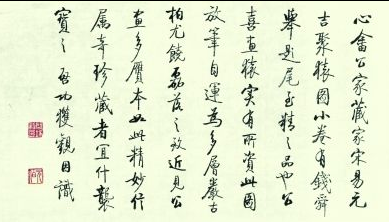 心畬公家藏宋易元
吉聚猿圖小卷有錢舜
舉題尾至精之品也公
喜畫猿實有所資此圖
放筆自運為多層巖古
柏尤饒磊落之致近見公
畫多贋本如此精妙信
屬奇珍藏者宜什襲
寶之 啓功獲觀因識